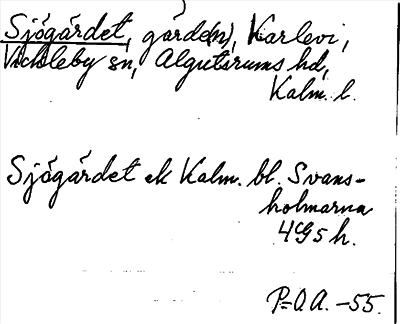 Sjögärdet, gärde(n), Karlevi,
Vickleby sn, Algutsrums hd,
Kalm. l.
Sjögärdet ek Kalm. bl. Svans-
holmarna
4G5h.
P-O.A. -55.